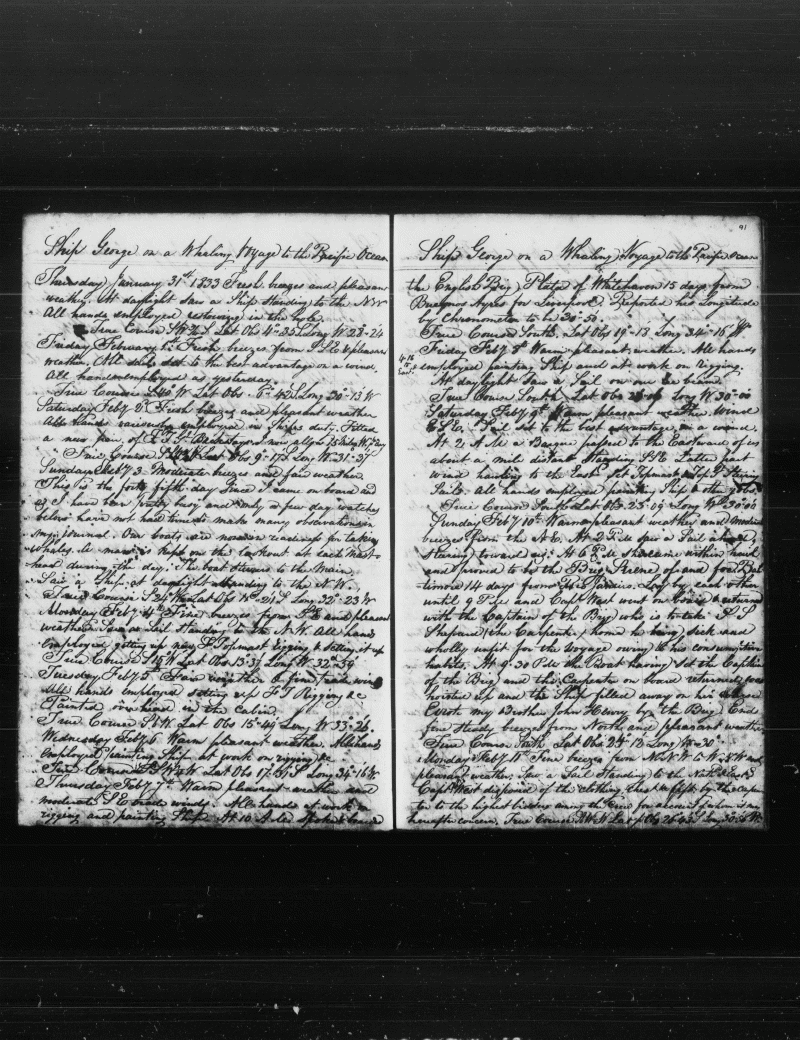 Ship George on a Whaling Voyage to the Pacific Ocean
Thursday January 31st 1833 Fresh breezes and pleasant
weather. At daylight Saw a Ship Standing to the N.W
All hands employed restowing in the hole
True Course Lat Obs Long W 28-24
Friday February 1st Fresh breezes from S.S.E & pleasant
weather. All sails set to the best advantage on a wind.
All hands employed as yesterday.
True Course W Lat Obs. 6-42 S Long 30-13 W
Saturday Feby 2d Fresh breezes and pleasant weather
All hands variously employed in Ships duty. Fitted
a new pair of
True Course Lat Obs 9-17 S Long W 31-27
Sunday Feby 3 Moderate breezes and fair weather
This is the forty fifth day Since I came on board and
as I have been pretty busy and only a few day watches
below have not had time to make many observations in
my journal. Our boats are now in readiness for taking
whales. A man is kept on the lookout at each mast
head during the day. The boat steerers to the Main
Saw a Ship at daylight standing to the N.W.
True Course S 24 W Lat Obs Long 32-23 W
Monday Feby 4th Fine breezes from S.E and pleasant
weather. Saw a Sail Standing to the N.W. All hands
employed getting up new F Topmast rigging & setting it up
True Course W Lat Obs 13-37 Long W 32-59
Tuesday Feby 5 Fair weather & fine trade wind
All hands employed setting up F T Rigging &c
Painted overhead in the cabin
True Course S W. Lat Obs 15-49 Long W 33-26
Wednesday Feby 6 Warm pleasant weather. All hands
employed painting Ship at work on rigging &c
True Course W Lat Obs 17-31 S Long 34-16 W
Thursday Feby 7th Warm pleasant weather and
moderate S E trade winds. All hands at work on
rigging and painting Ship. At 10 A.M. Spoke & boarded
91
Ship George on a Whaling Voyage to the Pacific Ocean
the English Brig of Whitehaven 15 days from
Buenos Ayres for Liverpool. Reported her Longitude
by Chronometer to be 30-50.
True Course South. Lat Obs 19-13 Long 34-16 W
Friday Feby 8th Warm pleasant weather. All hands
employed painting Ship and at work on rigging.
4-16
East
At daylight Saw a Sail on our lee beam.
True Course South Lat Obs Long W 30-00
Saturday Feby 9th Warm pleasant weather wind
E S.E. Sail set to the best advantage on a wind
At 2 A.M a Barque passed to the Eastward of us
about a mile distant Standing S.E Latter part
wind hauling to the East Set Topmast & Studding
Sails. All hands employed painting Ship & other jobs.
True Course South Lat Obs 23-09 Long W 30-00
Sunday Feby 10th Warm pleasant weather and moderate
breezes from the N.E. At 2 P.M spoke a Sail ahead,
steering toward us. At 6 P.M She came within hail
and proved to be the Brig Sirene of and from Bal
timore 14 days from Rio Janeiro Lay by each other
until 9 P.M and Capt West went on board & returned
with the Captain of the Brig who is to take S S
Shepard (the Carpenter) home he being sick and
wholly unfit for the voyage owing to his consumptive
habits. At 9.30 P.M the Boat having set the Captain
of the Brig and the Carpenter on board returned was
hoisted up and the Ship filled away on his course
Wrote my Brother John Henry by the Brig. Ends
fine Steady breezes from North and pleasant weather
True Course South. Lat Obs 24-12 Long W 30-
Monday Feby 11th Fine breezes from N.N.W to W.N.W and
pleasant weather. Saw a Sail Standing to the
Capt West disposed of the clothing, chest & left by the Carpen
ter to the highest bidder among the crew for account of whom it may
hereafter concern. True Course S.W. Lat Obs 26-43 S Long 30-36 W